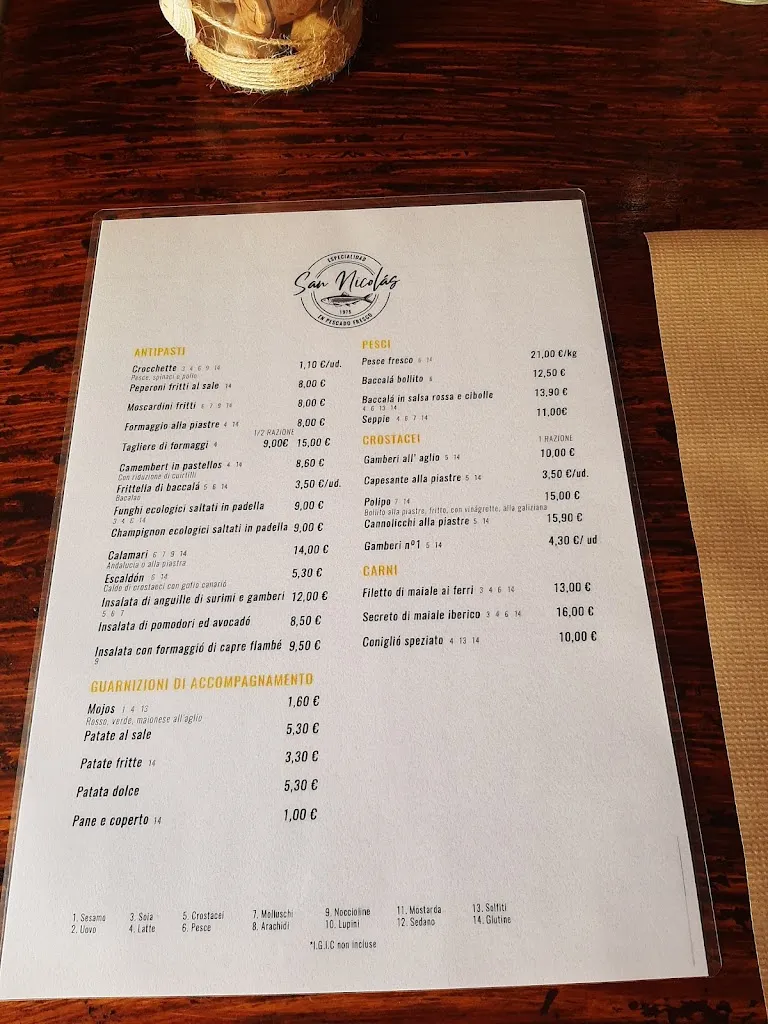 ESPECIALIDAD
San Nicolás
1976
EN PESCADO FRESCO
ANTIPASTI
Crocchette 3 4 6 9 14 1,10 €/ud.
Pesce, spinaci e pollo
Peperoni fritti al sale 14 8,00 €
Moscardini fritti 6 7 9 14 8,00 €
Formaggio alla piastre 4 14 8,00 €
1/2 RAZIONE
Tagliere di formaggi 4 9,00€ 15,00 €
Camembert in pastellos 4 14 8,60 €
Con riduzione di
Frittelia di baccalá 5 6 14 3,50 €/ud.
Bacalao
Funghi ecologici saltati in padella 9,00 €
3 4 6 14
Champignon ecologici saltati in padella 9,00 €
Calamari 6 7 9 14 14,00 €
Andalucia o alla piastra
Escaldón 5 14 5,30 €
Caldo di crostaeci con gofio canarió
Insalata di anguille di surimi e gamberi 12,00 €
5 6 7
Insalata di pomodori ed avocadó 8,50 €
Insalata con formaggió di capre flambé 9,50 €
9
GUARNIZIONI DI ACCOMPAGNAMENTO
Mojos 1 4 13 1,60 €
Rosso, verde, maionese all'aglio
Patate al sale 5,30 €
Patate fritte 14 3,30 €
Patata dolce 5,30 €
Pane e coperto 14 1,00 €
PESCI
Pesce fresco 6 14 21,00 €/kg
Baccalá bollito 6 12,50 €
Baccalá in salsa rossa e cibolle 13,90 €
4 6 13 14
Seppie 4 6 7 14 11,00€
CROSTACEI 1 RAZIONE
Gamberi all' aglio 5 14 10,00 €
Capesante alla piastre 5 14 3,50 €/ud.
Polipo 7 14 15,00 €
Bollito alla piastre, fritto, con vinagrette, alla galiziana
Cannolicchi alla piastre 5 14 15,90 €
Gamberi nº1 5 14 4,30 €/ ud
CARNI
Filetto di maiale ai ferri 3 4 6 14 13,00 €
Secreto di maiale iberico 3 4 6 14 16,00 €
Conglió speziato 4 13 14 10,00 €
1. Sesamo 3. Soia 5. Crostacei 7. Molluschi 9. Noccioline 11. Mostarda 13. Solfiti
2. Uovo 4. Latte 6. Pesce 8. Arachidi 10. Lupini 12. Sedano 14. Glutine
*I.G.I.C non incluse